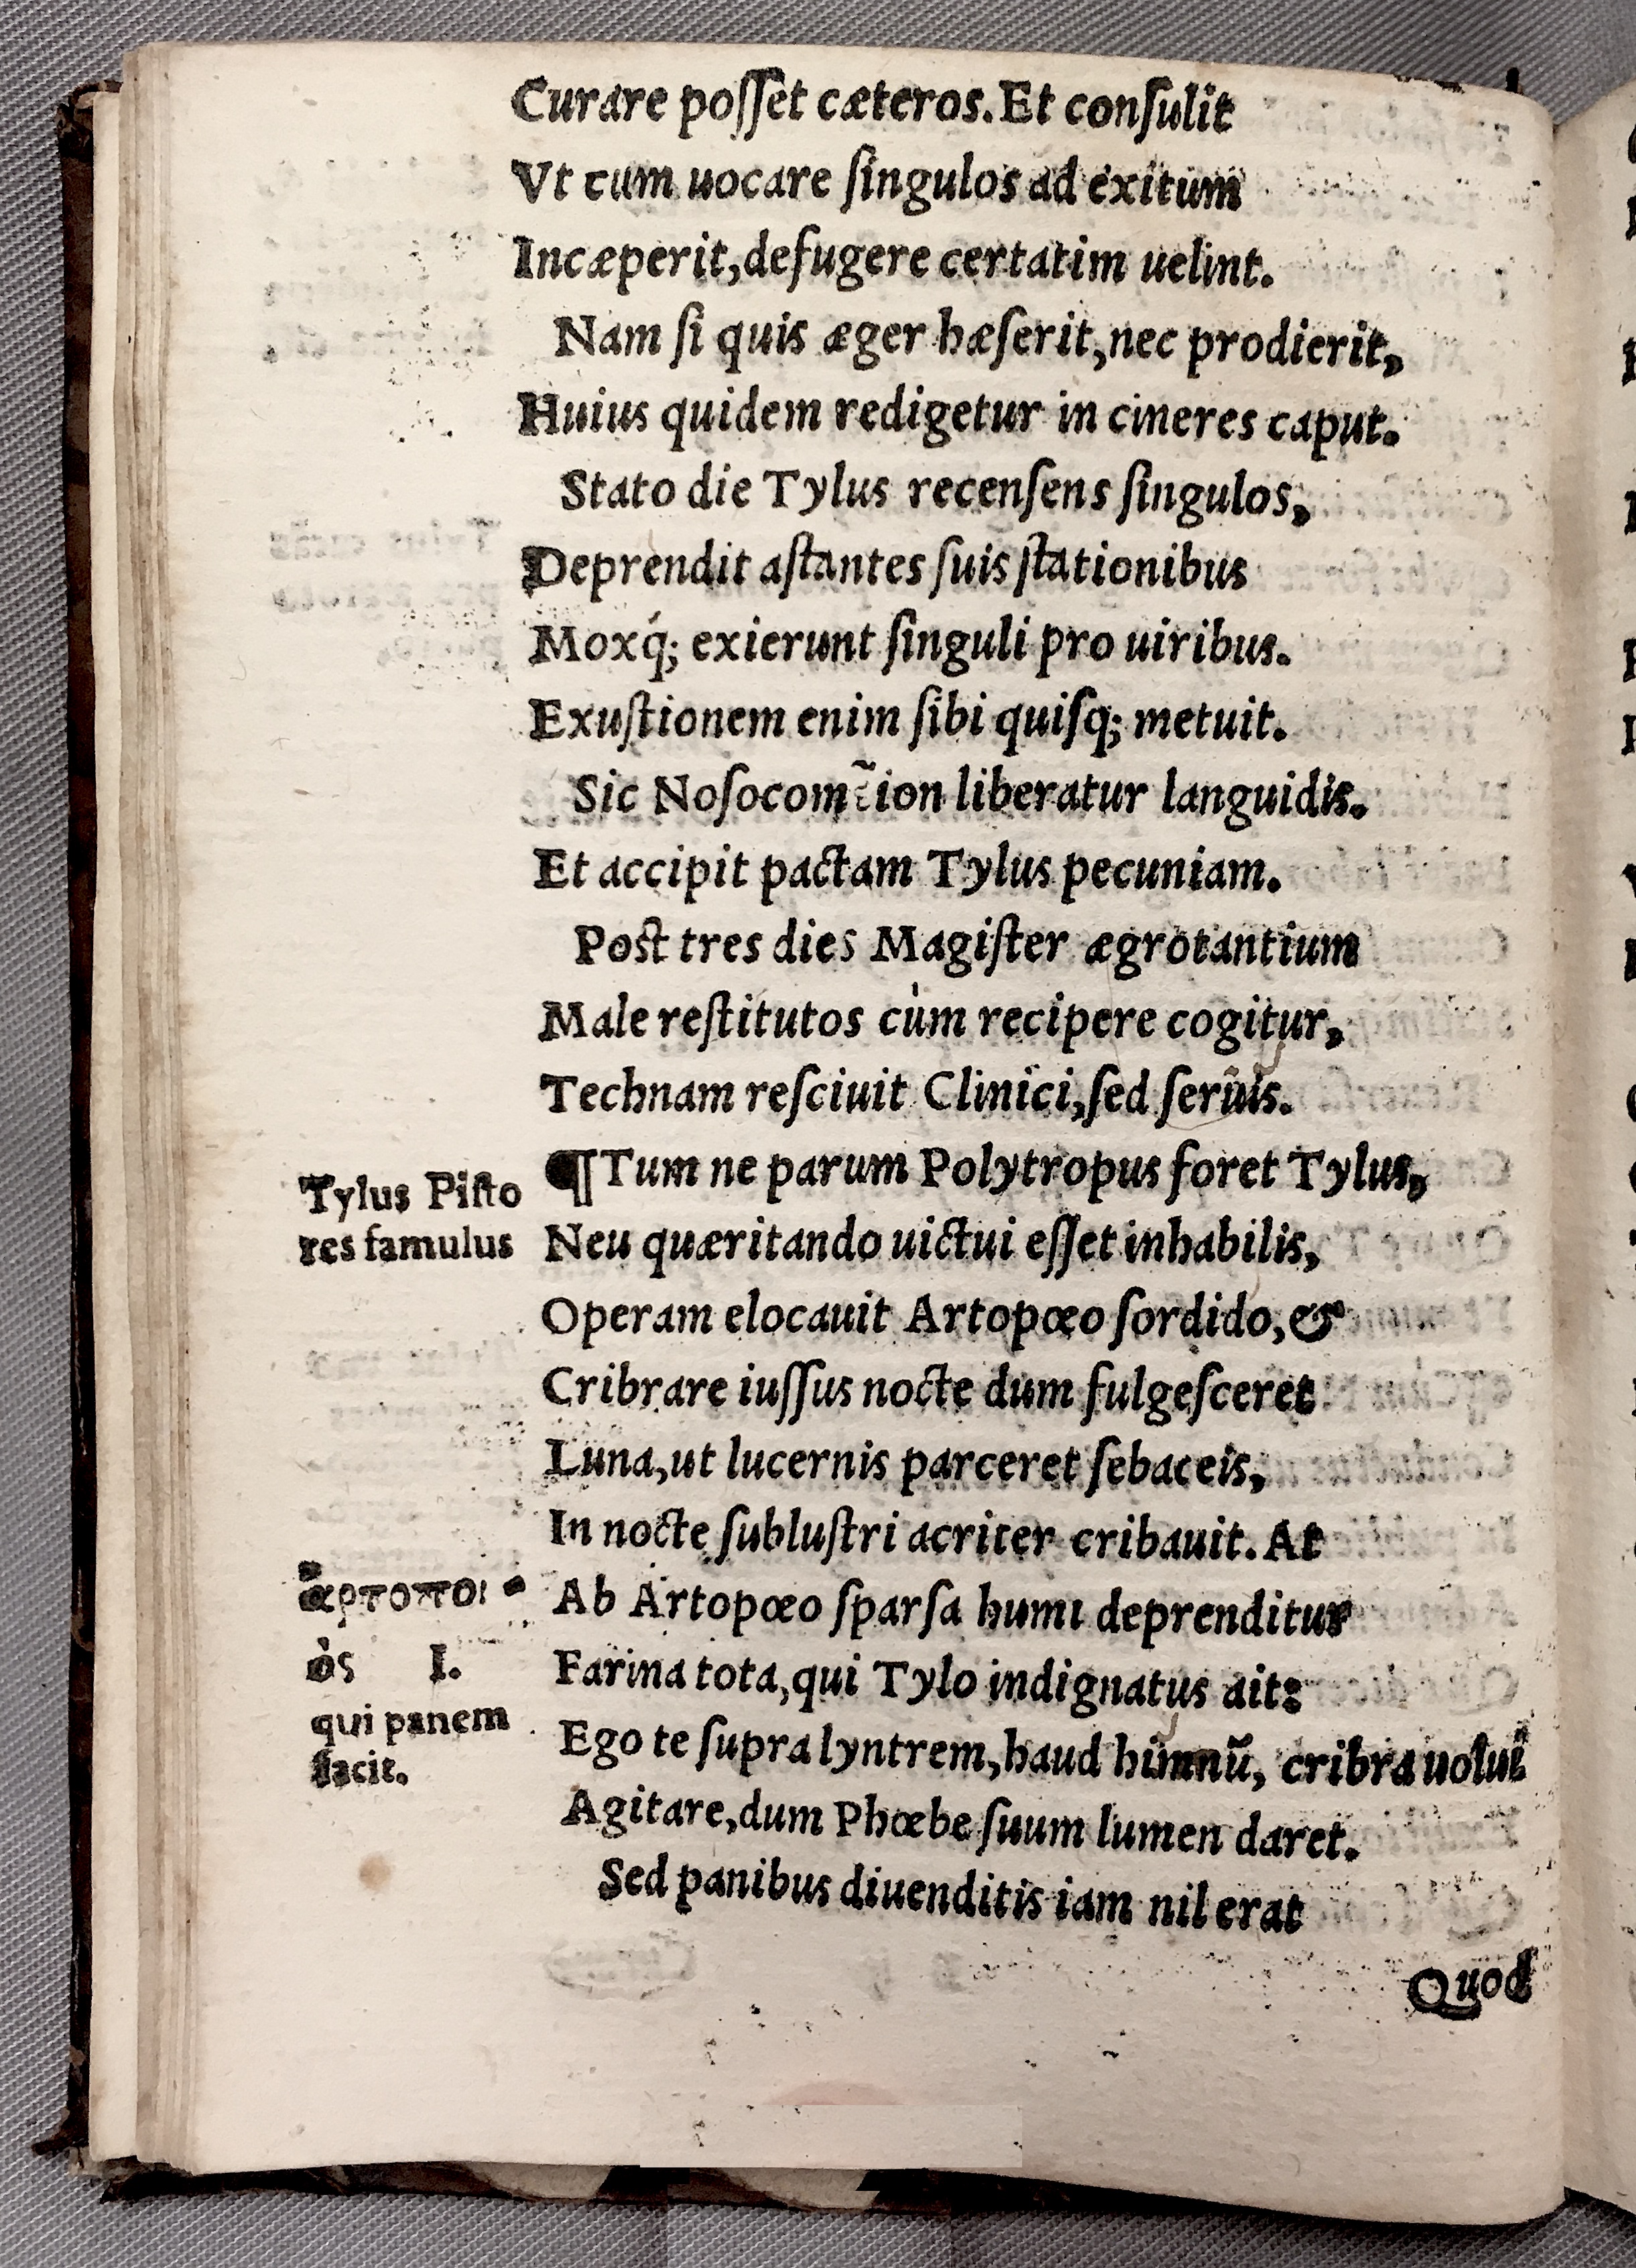 Curare poſſet cæteros. Et conſulit
Vt cum uocare ſingulos ad exitum
Incæperit, defugere certatim uelint.
Nam ſi quis æger hæſerit, nec prodierit,
Huius quidem redigetur in cineres caput.
Stato die Tylus recenſens ſingulos,
Deprendit aſtantes ſuis ſtationibus
Moxq́; exierunt ſinguli pro uiribus.
Exuſtionem enim ſibi quiſq; metuit.
Sic Noſocom̃ion liberatur languidis.
Et accipit pactam Tylus pecuniam.
Poſt tres dies Magiſter ægrotantium
Male reſtitutos cùm recipere cogitur,
Technam reſciuit Clinici, ſed ſerùis.
Tylus Piſto
res famulus
¶ Tum ne parum Polytropus foret Tylus,
Neu quæritando uictui eſſet inhabilis,
Operam elocauit Artopœo ſordido, &
Cribrare iuſſus nocte dum fulgeſceret
Luna, ut lucernis parceret ſebaceis,
In nocte ſubluſtri acriter cribauit. At
ἀρτοποι-
ὸς I.
qui panem
facit.
Ab Artopœo ſparſa humi deprenditur
Farina tota, qui Tylo indignatus ait:
Ego te ſupra lyntrem, haud himnũ, cribra uolui
Agitare, dum Phœbe ſuum lumen daret.
Sed panibus diuenditis iam nil erat
Quod